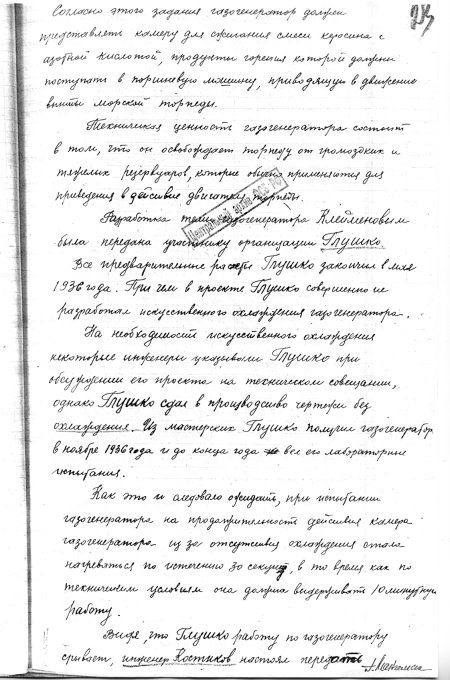 Согласно этого задания газогенератор должен
представлять камеру для сжигания смеси керосина с
азотной кислотой, продукты горения которой должны
поступать в поршневую машину, приводящую в движение
винты морской торпеды.
Техническая ценность газогенератора состоит
в том, что он освобождает торпеду от громоздких и
тяжелых резервуаров, которые обычно применяются для
приведения в действие двигателя торпеды.
Центральный архив ФСБ РФ
Разработка темы газогенератора Клейменовым
была передана участнику организации Глушко.
Все предварительные расчеты Глушко закончил в мае
1936 года. При чем в проекте Глушко совершенно не
разработал искусственного охлаждения газогенератора.
На необходимость искусственного охлаждения
некоторые инженеры указывали Глушко при
обсуждении его проекта на техническом совещании,
однако Глушко сдал в производство чертежи без
охлаждения. Из мастерских Глушко получил газогенератор
в ноябре 1936 года и до конца года вел его лабораторные
испытания.
Как это и следовало ожидать, при испытании
газогенератора на продолжительность действия камера
газогенератора из за отсутствия охлаждения стала
нагреваться по истечению 30 секунд, в то время как по
техническим условиям она должна выдерживать 10 минутную
работу.
Видя, что Глушко работу по газогенератору
срывает, инженер Костиков настоял передать